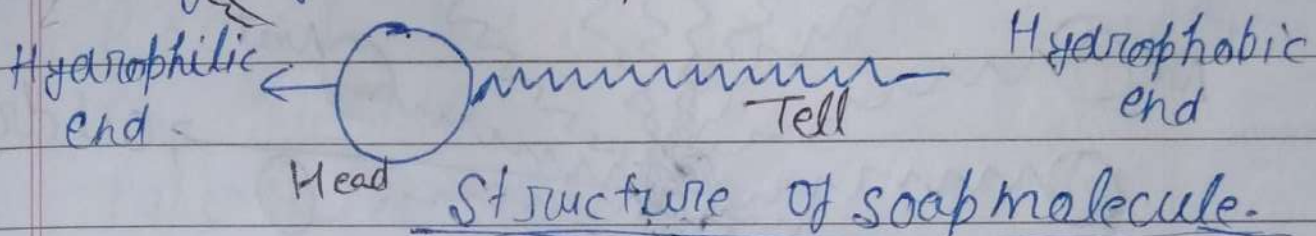 Hydrophilic
end
Head
Tell
Hydrophobic
end
Structure of soap molecule.